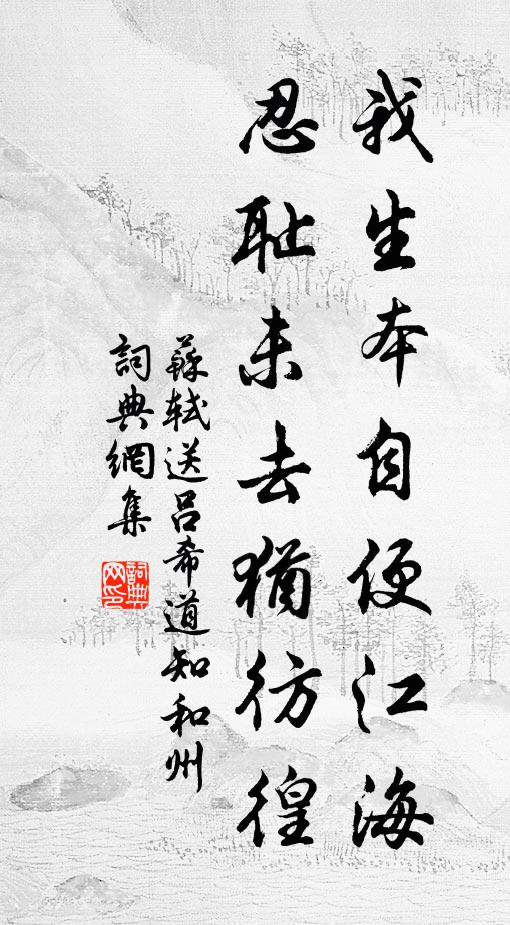 我生本自便江海
忍耻未去猶彷徨
蘇軾送呂希道知和州
詞典網集
詞典
网印